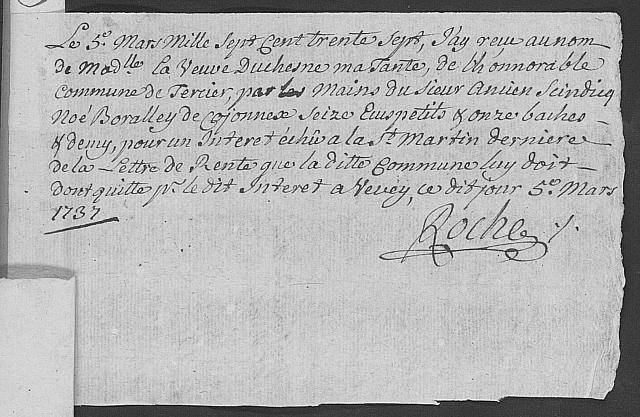 Le 5.e Mars Mille Sept Cent trente Sept, J'ay reçu au nom
de Mad.lle la Veuve Duchesne ma Tante, de L'honnorable
Commune de Tercier, par les Mains du Sieur Ancien Scindicq
Noé Boralley de Cojonnex Seize Ecus petits & onze baches
& demy, pour un Interet échû a la St Martin derniere
de la Lettre de Rente que la ditte Commune luy doit
dont quitte pr. le dit Interet a Vevey, ce dit jour 5.e Mars
1737
Roche